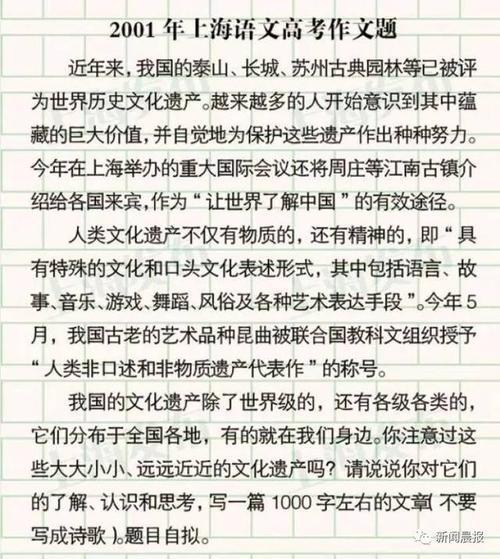 2001年上海语文高考作文题
近年来，我国的泰山、长城、苏州古典园林等已被评
为世界历史文化遗产。越来越多的人开始意识到其中蕴
藏的巨大价值，并自觉地为保护这些遗产作出种种努力。
今年在上海举办的重大国际会议还将周庄等江南古镇介
绍给各国来宾，作为“让世界了解中国”的有效途径。
人类文化遗产不仅有物质的，还有精神的，即“具
有特殊的文化和口头文化表述形式，其中包括语言、故
事、音乐、游戏、舞蹈、风俗及各种艺术表达手段”。今年5
月，我国古老的艺术品种昆曲被联合国教科文组织授予
“人类非口述和非物质遗产代表作”的称号。
我国的文化遗产除了世界级的，还有各级各类的，
它们分布于全国各地，有的就在我们身边。你注意过这
些大大小小、远远近近的文化遗产吗？请说说你对它们
的了解、认识和思考，写一篇1000字左右的文章（不要
写成诗歌）。题目自拟。
新闻晨报